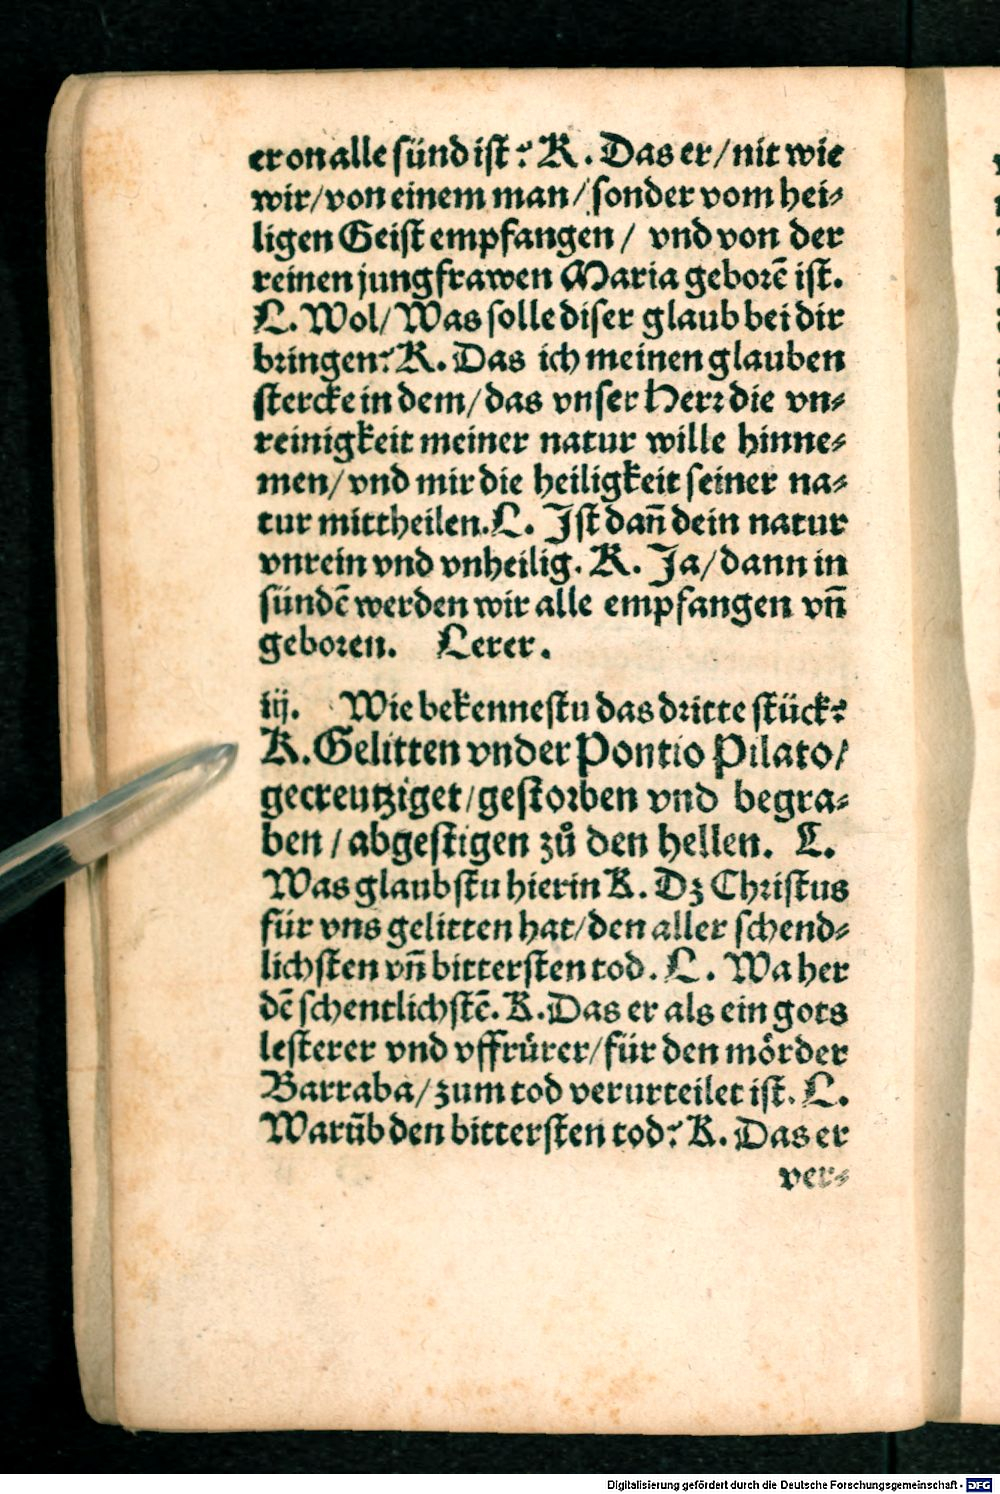 er on alle sünd ist? K. Das er/nit wie
wir/von einem man/sonder vom hei⸗
ligen Geist empfangen/ vnd von der
reinen jungfrawen Maria geborē ist.
L. Wol/Was solle diser glaub bei dir
bringen? K. Das ich meinen glauben
stercke in dem/das vnser Herr die vn⸗
reinigkeit meiner natur wille hinne⸗
men/vnd mir die heiligkeit seiner na⸗
tur mittheilen. L. Ist dañ dein natur
vnrein vnd vnheilig. K. Ja/dann in
sündē werden wir alle empfangen vñ
geboren. Lerer.
iij. Wie bekennestu das dritte stück?
K. Gelitten vnder Pontio Pilato/
gecreutziget/gestorben vnd begra⸗
ben/abgestigen zů den hellen. L.
Was glaubstu hierin K. Dz Christus
für vns gelitten hat/den aller schend⸗
lichsten vñ bittersten tod. L. Wa her
dē schentlichstē. K. Das er als ein gots
lesterer vnd vffrürer/für den mörder
Barraba/zum tod verurteilet ist. L.
Warūb den bittersten tod? K. Das er
ver⸗
Digitalisierung gefördert durch die Deutsche Forschungsgemeinschaft - DFG